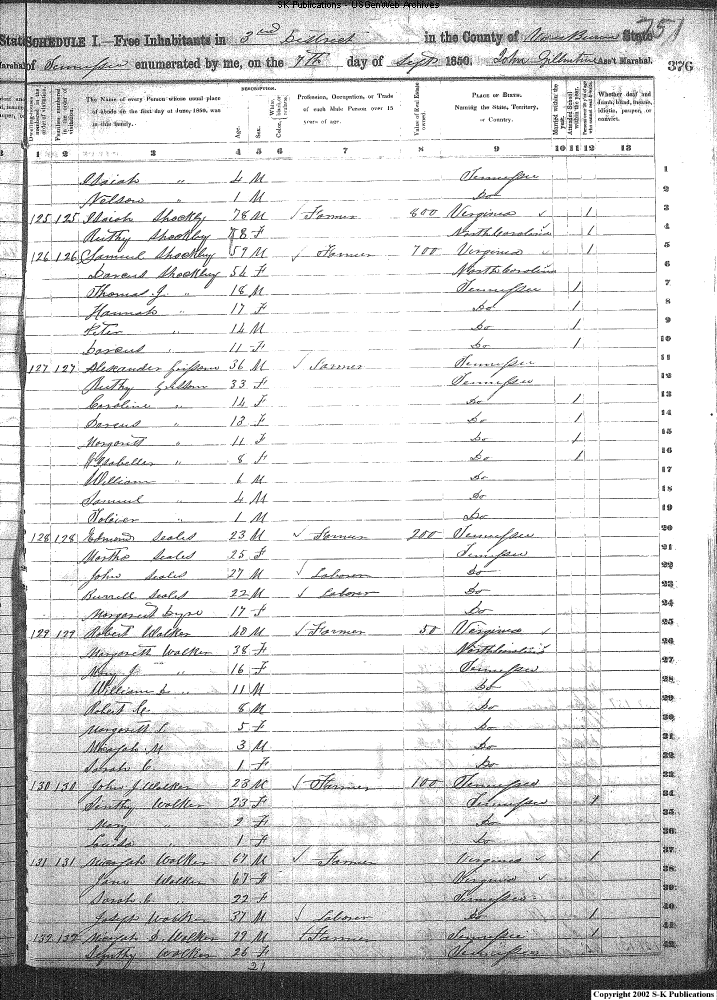 SK Publications - USGenWeb Archives
251
SCHEDULE I.—Free Inhabitants in 3rd District in the County of Van Buren State
of Tennessee enumerated by me, on the 7th day of Sept 1850. John Gillentine Ass't Marshal. 376
DESCRIPTION.
The Name of every Person whose usual place of abode on the first day of June, 1850, was in this family.
Age.
Sex.
Profession, Occupation, or Trade of each Male Person over 15 years of age.
Value of Real Estate owned.
PLACE OF BIRTH. Naming the State, Territory, or Country.
Married within the year.
Attended School within the year.
Whether deaf and dumb, blind, insane, idiotic, pauper, or convict.
1 2 3 4 5 6 7 8 9 10 11 12 13
Isaiah " 4 M Tennessee 1
Nelson " 1 M Do 2
125 125 Isaiah Shockley 78 M Farmer 800 Virginia 1 3
Ruthy Shockley 78 F North Carolina 1 4
126 126 Samuel Shockley 59 M Farmer 700 Virginia 1 5
Darcus Shockley 54 F North Carolina 6
Thomas J. " 18 M Tennessee 1 7
Hannah " 17 F Do 1 8
Peter " 14 M Do 1 9
Darcus " 11 F Do 1 10
127 127 Alexander Grissom 36 M Farmer Tennessee 11
Ruthy Grissom 33 F Tennessee 12
Caroline " 14 F Do 1 13
Darcus " 13 F Do 1 14
Margarett " 11 F Do 1 15
Isabella " 8 F Do 1 16
William " 6 M Do 17
Samuel " 4 M Do 18
Toliver " 1 M Do 19
128 128 Edmond Seales 23 M Farmer 200 Tennessee 20
Martha Seales 25 F Tennessee 21
John Seales 27 M Laborer Do 22
Burrell Seales 22 M Laborer Do 23
Margaret Dyre 17 F Do 24
129 129 Robert Walker 40 M Farmer 50 Virginia 25
Margarett Walker 38 F North Carolina 26
Mary J " 16 F Tennessee 27
William L " 11 M Do 28
Robert C. 8 M Do 29
Margarett S. 5 F Do 30
Micajah M 3 M Do 31
Sarah C. 1 F Do 32
130 130 John J Walker 28 M Farmer 100 Tennessee 33
Sinthy Walker 23 F Tennessee 1 34
Mary 2 F Do 35
1 F Do 36
131 131 Micajah Walker 67 M Farmer Virginia 1 37
Jane Walker 67 F Virginia 38
Sarah C. " 22 F Tennessee 39
Joseph Walker 37 M Laborer Do 1 40
132 132 Micajah D. Walker 29 M Farmer Tennessee 1 41
Synthy Walker 26 F Tennessee 42
21
Copyright 2002 S-K Publications